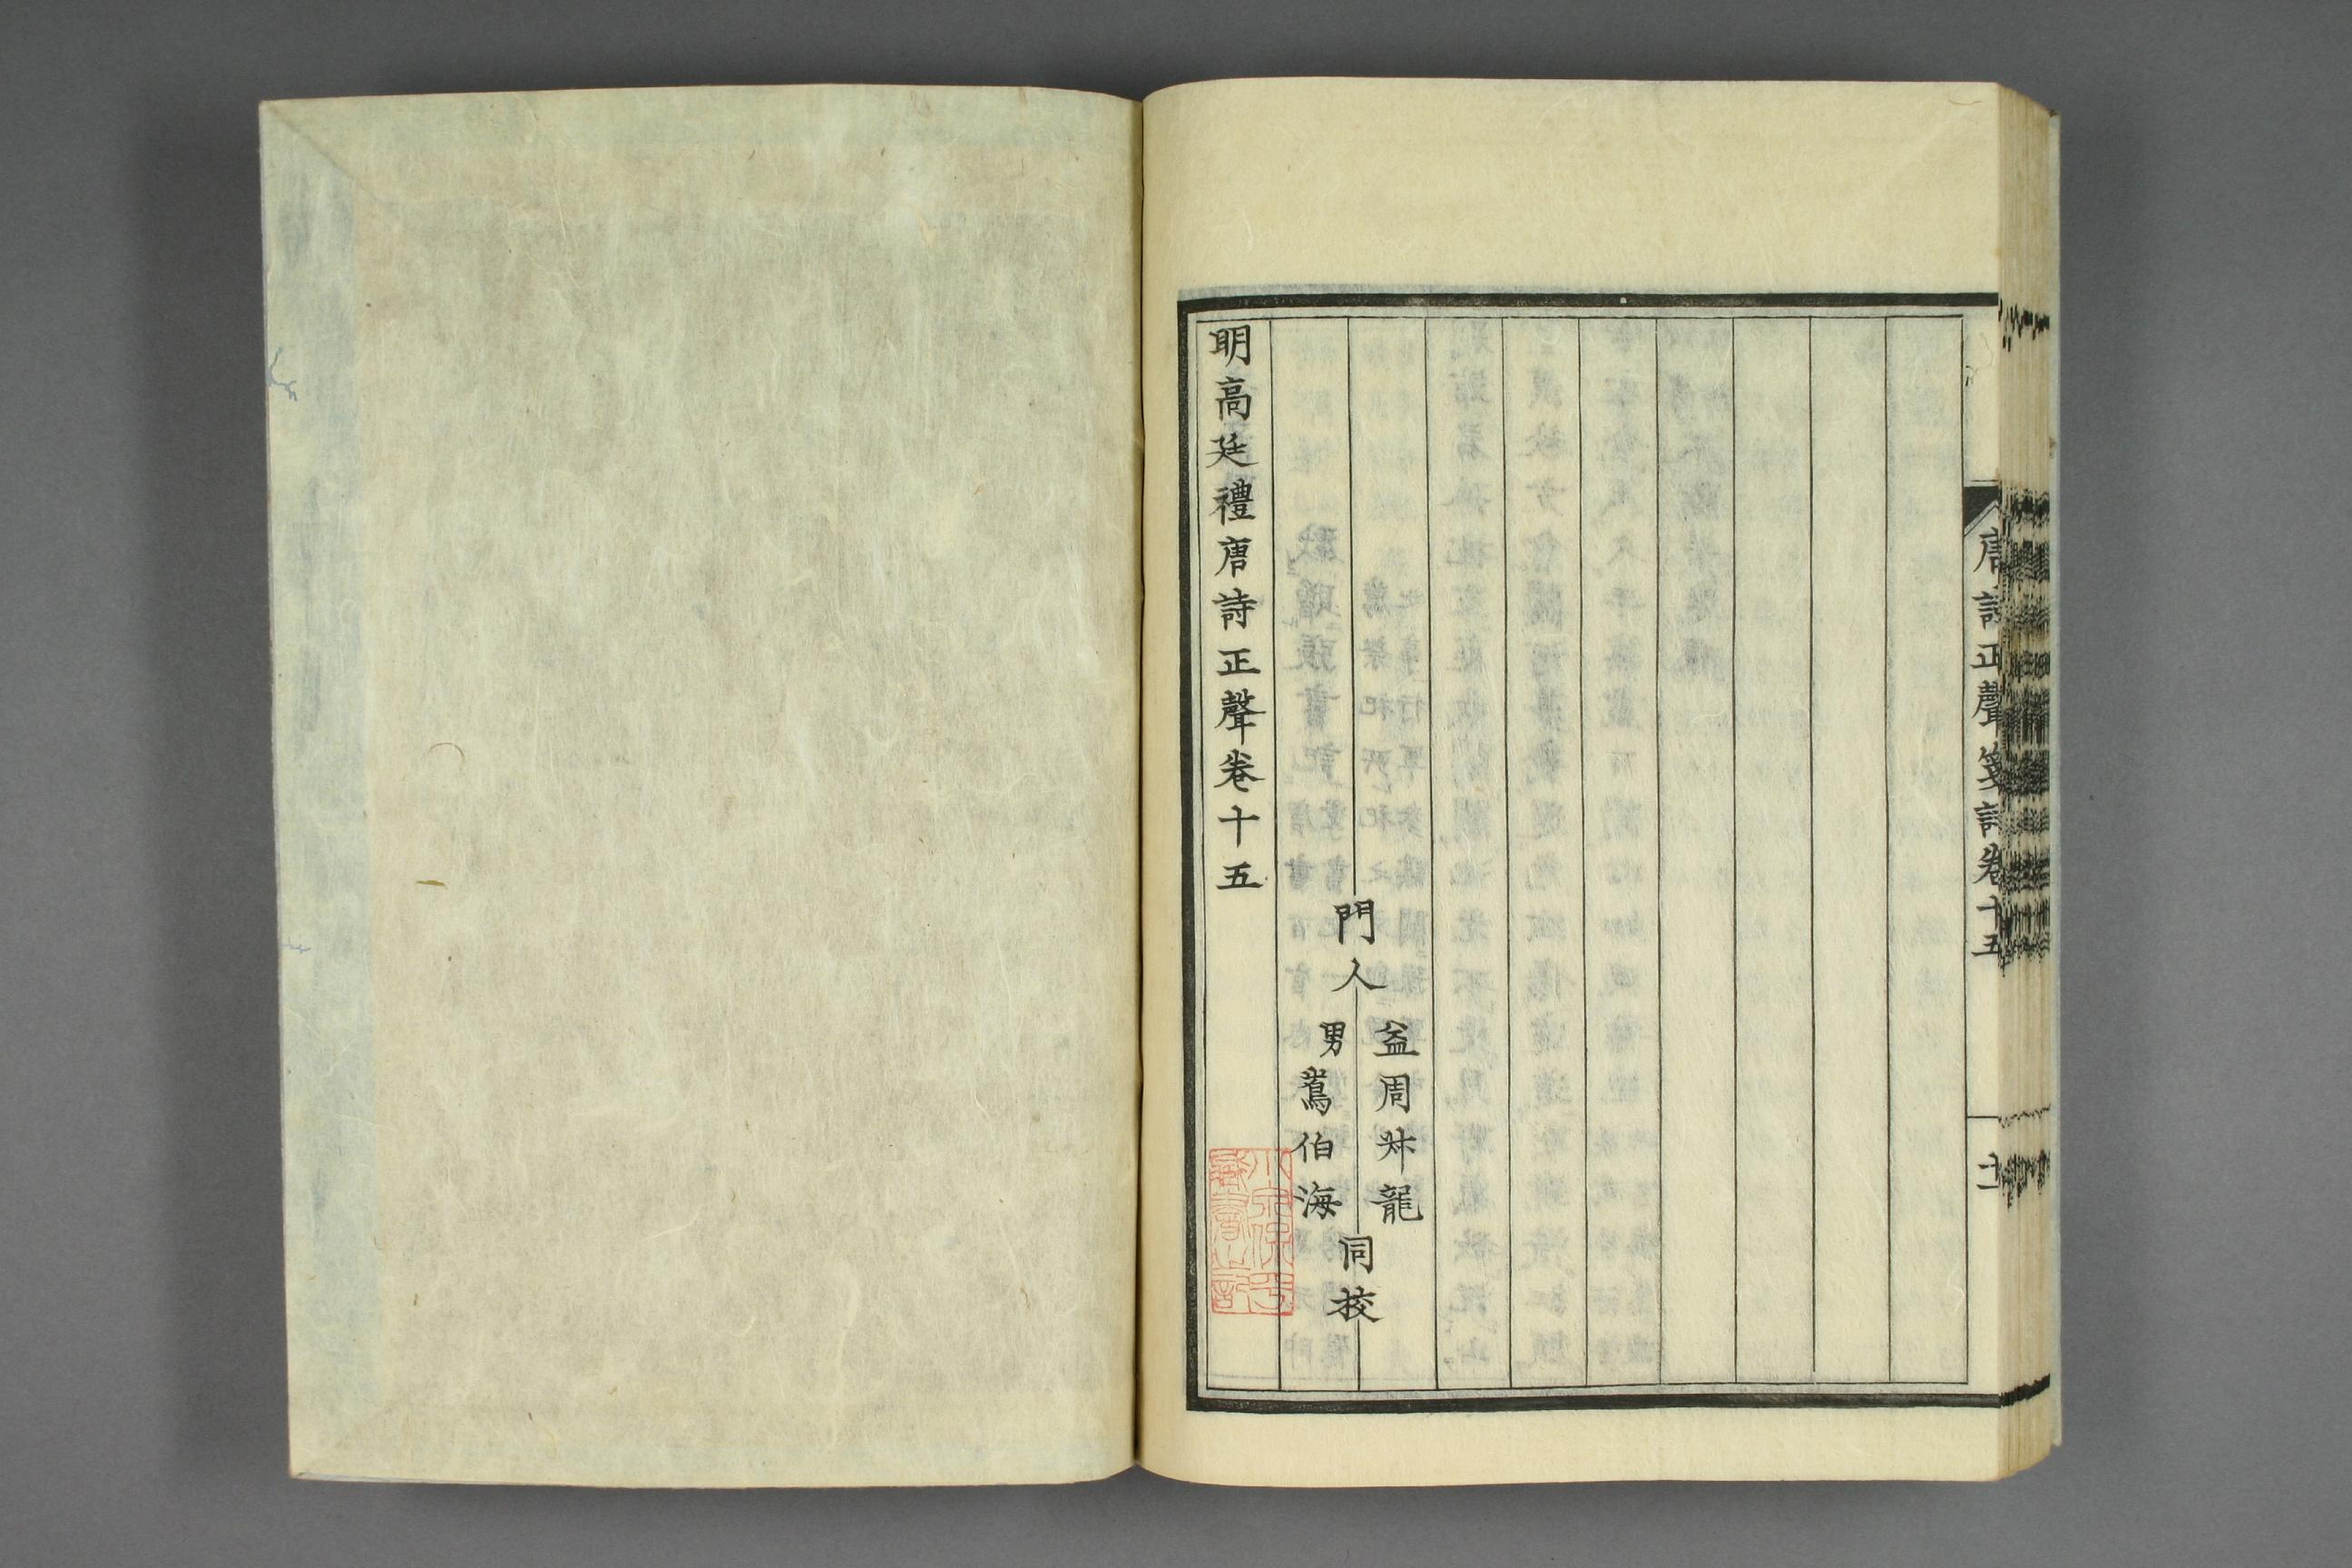 唐詩正聲箋註卷十五
十一
門人
益周舛龍
男蔿伯海
同挍
明高廷禮唐詩正聲卷十五